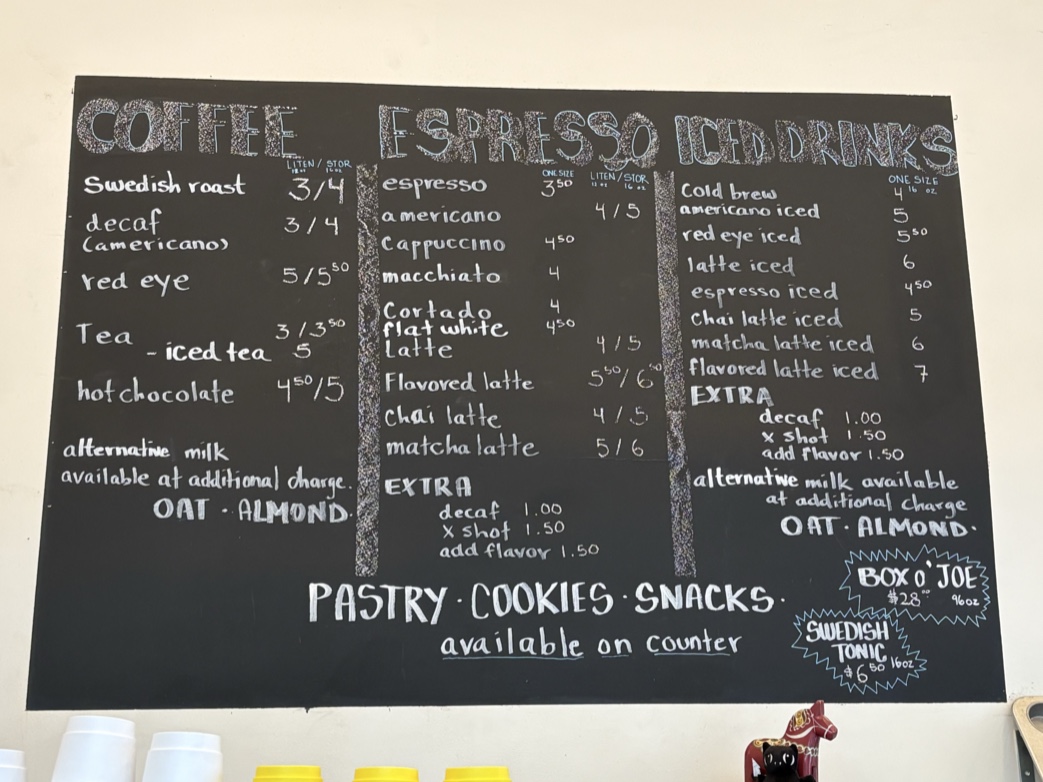 COFFEE
LITEN / STOR
12 oz 16 oz
Swedish roast 3/4
decaf 3/4
(americano)
red eye 5/5⁵⁰
Tea 3/3⁵⁰
- iced tea 5
hot chocolate 4⁵⁰/5
alternative milk
available at additional charge.
OAT · ALMOND.
ESPRESSO
ONE SIZE LITEN/STOR
12 oz 16 oz
espresso 3⁵⁰
americano 4/5
Cappuccino 4⁵⁰
macchiato 4
Cortado 4
flat white 4⁵⁰
Latte 4/5
Flavored latte 5⁵⁰/6⁵⁰
Chai latte 4/5
matcha latte 5/6
EXTRA
decaf 1.00
x shot 1.50
add flavor 1.50
ICED DRINKS
ONE SIZE
16 oz
Cold brew 4
americano iced 5
red eye iced 5⁵⁰
latte iced 6
espresso iced 4⁵⁰
Chai latte iced 5
matcha latte iced 6
flavored latte iced 7
EXTRA
decaf 1.00
x shot 1.50
add flavor 1.50
alternative milk available
at additional charge
OAT · ALMOND.
PASTRY · COOKIES · SNACKS.
available on counter
BOX O' JOE
$28⁰⁰ 96oz
SWEDISH
TONIC
$6⁵⁰ 16oz